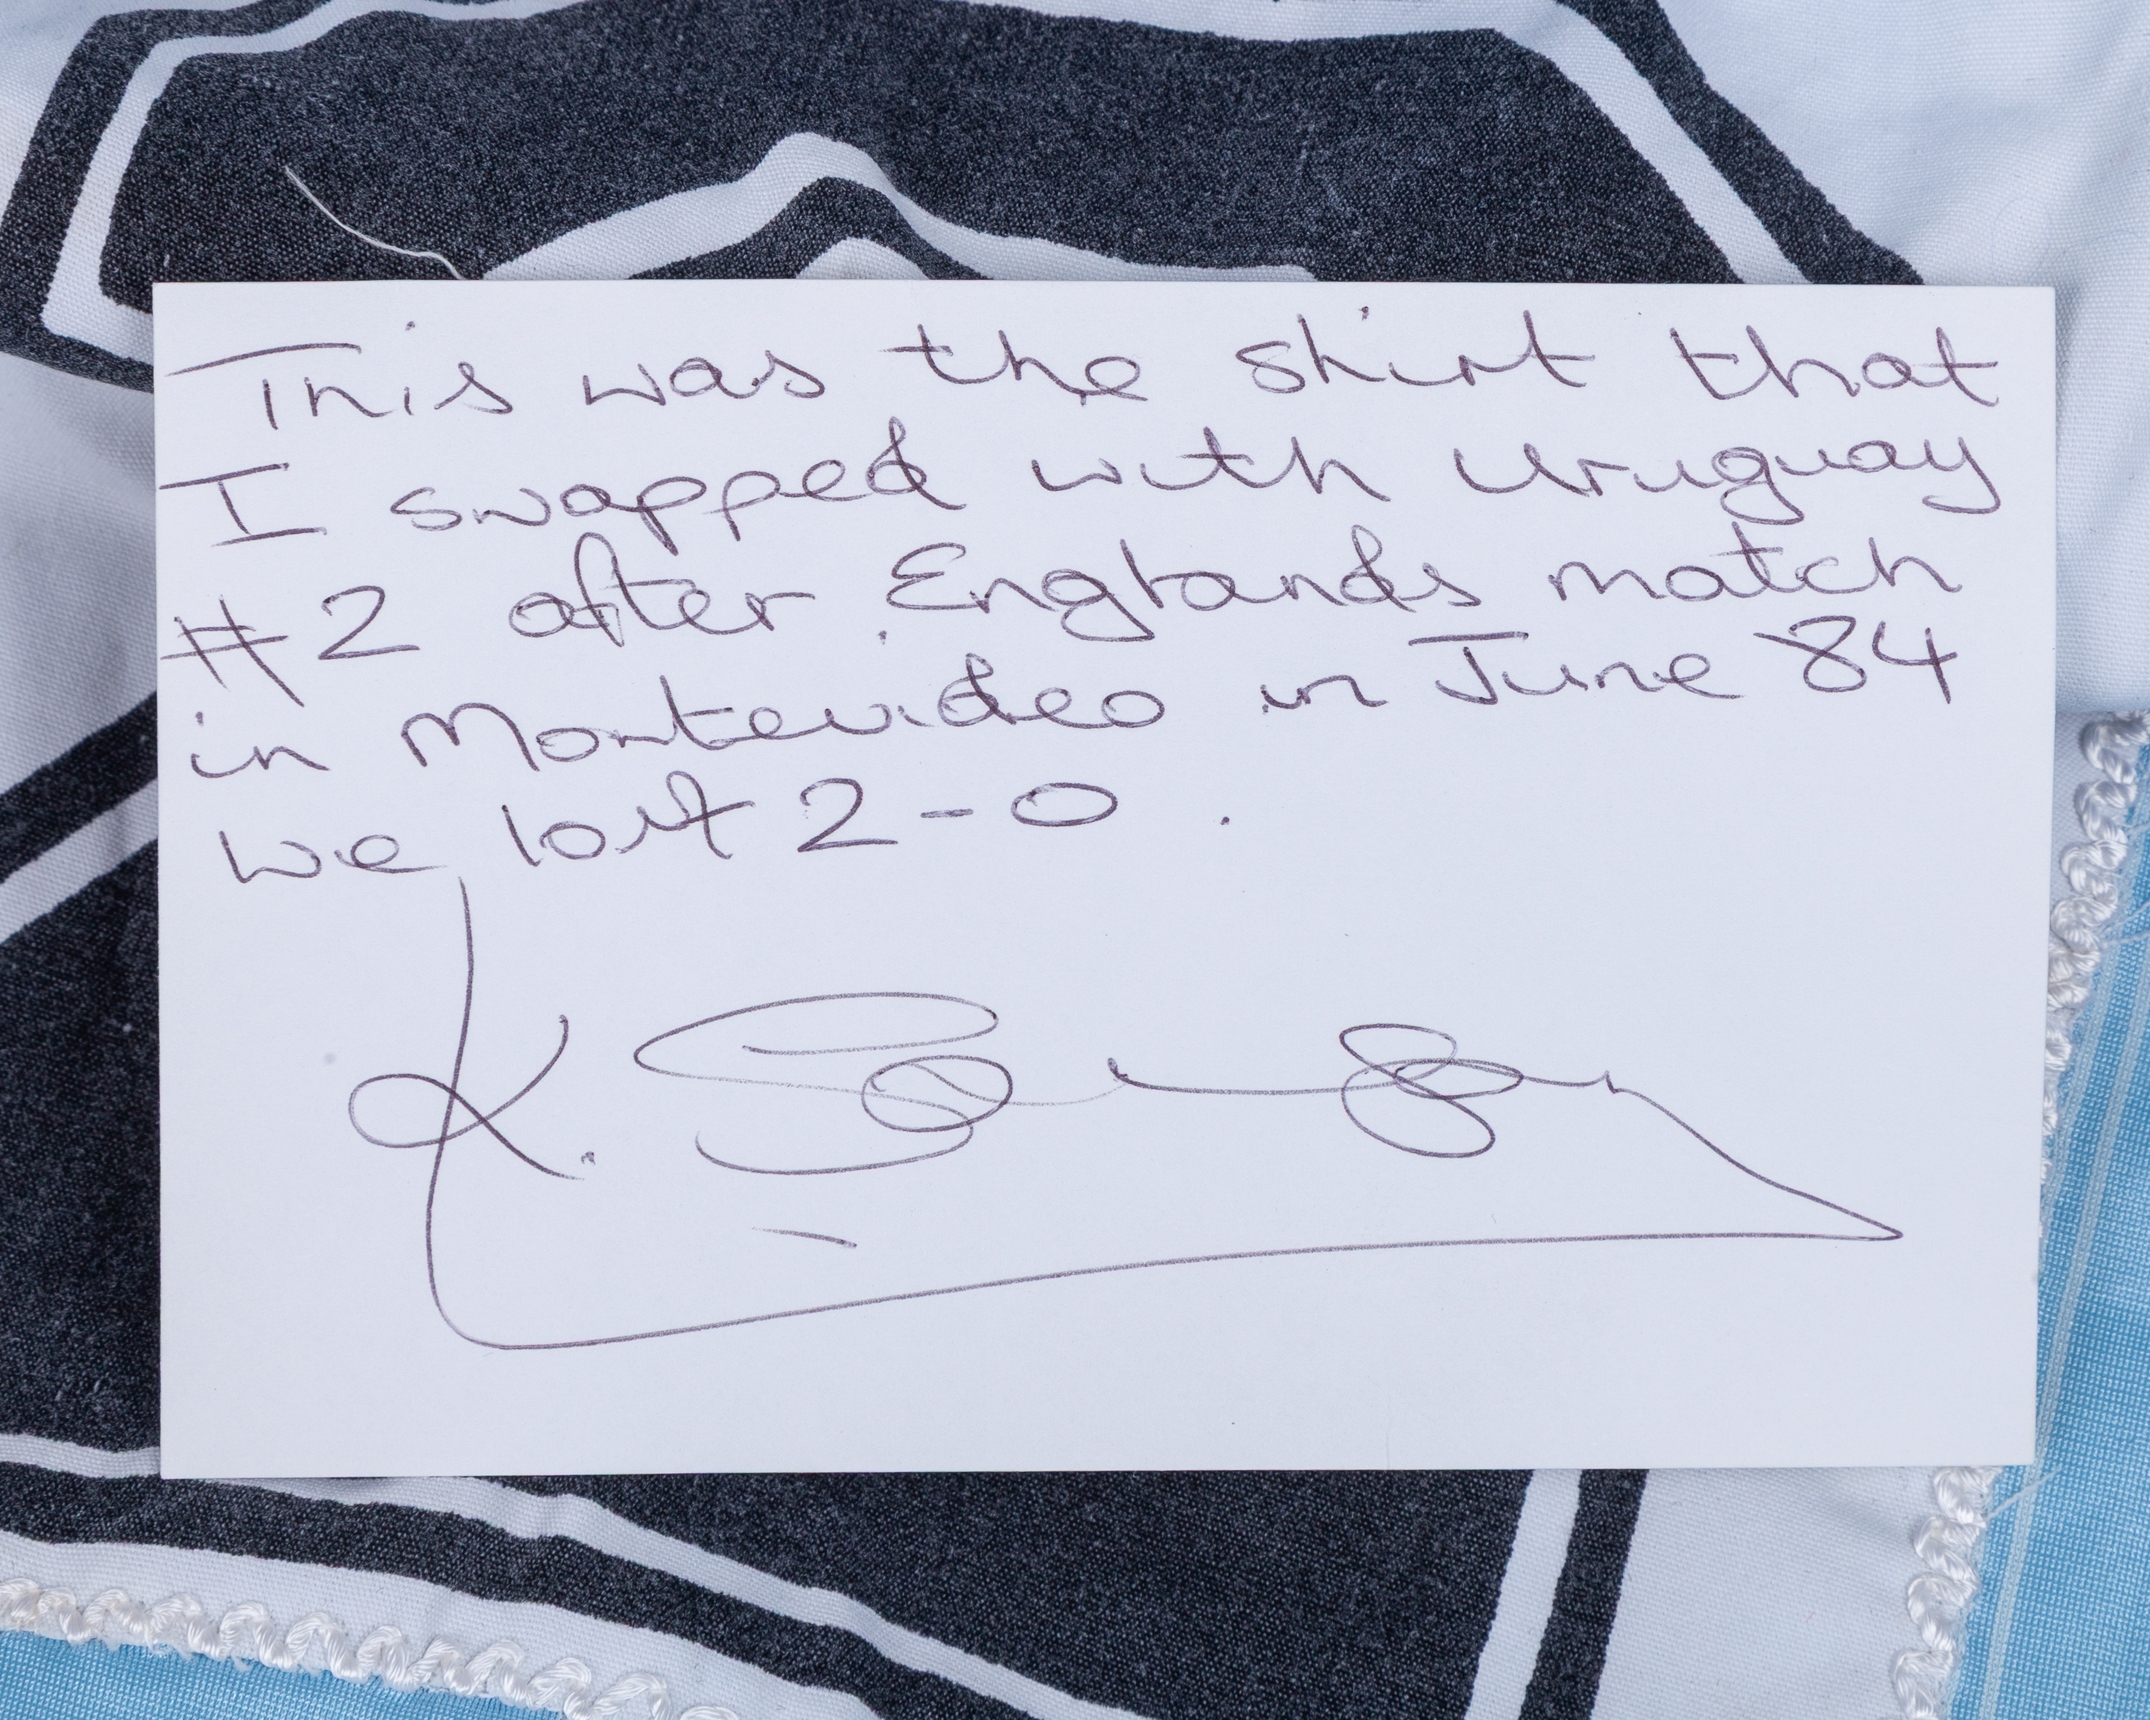 This was the shirt that
I swapped with Uruguay
#2 after Englands match
in Montevideo in June 84
we lost 2-0.
K. Sansom